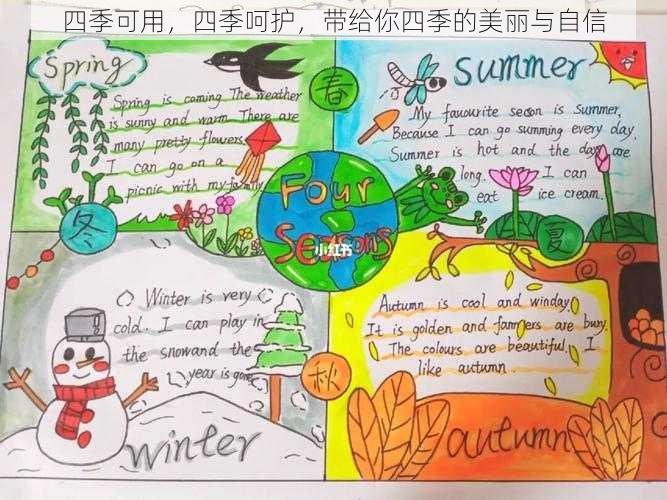 四季可用，四季呵护，带给你四季的美丽与自信
Spring
Spring is coming The weather
is sunny and warm There are
many pretty flowers
I can go on a
picnic with my family
春
summer
My favourite secson is Summer,
Because I can go summing every day.
Summer is hot and the days are
long. I can
eat ice cream.
夏
Four
Seasons
小红书
冬
Winter is very
cold. I can play in
the snowand the
year is gone
winter
秋
Autumn is cool and winday
It is golden and farmers are busy.
The colours are beautiful. I
like autumn.
autumn